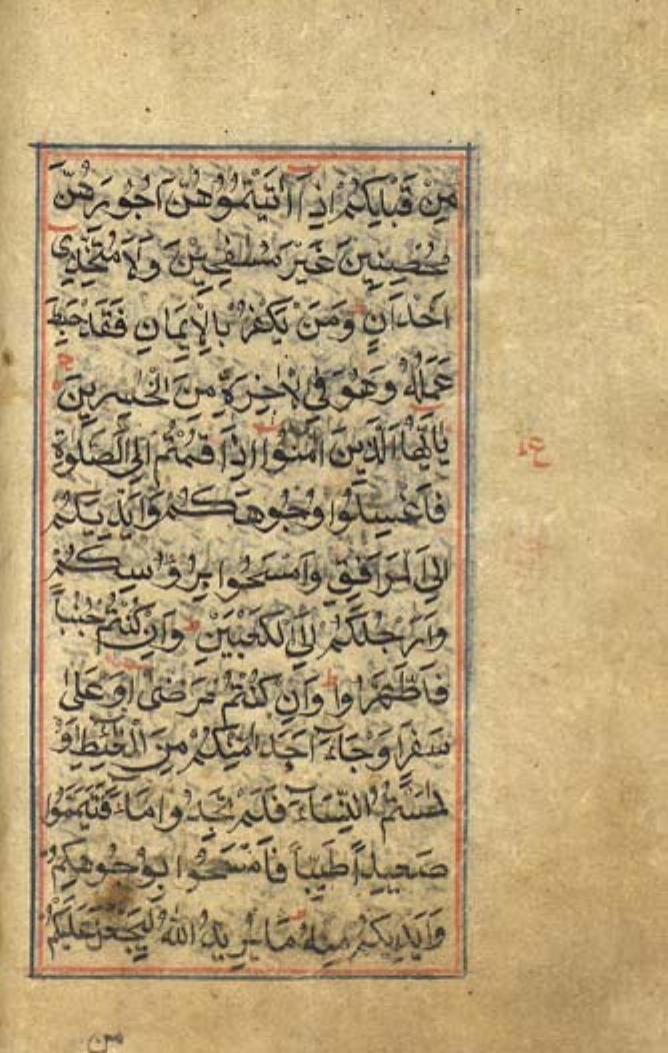 مِنْ قَبْلِكُمْ اِذَآ اٰتَيْتُمُوْهُنَّ اُجُوْرَهُنَّ
مُحْصِنِيْنَ غَيْرَ مُسٰفِحِيْنَ وَلَا مُتَّخِذِيْٓ
اَخْدَانٍ وَمَنْ يَكْفُرْ بِالْاِيْمَانِ فَقَدْ حَبِطَ
عَمَلُهٗ وَهُوَ فِي الْاٰخِرَةِ مِنَ الْخٰسِرِيْنَ
يٰٓاَيُّهَا الَّذِيْنَ اٰمَنُوْٓا اِذَا قُمْتُمْ اِلَى الصَّلٰوةِ
فَاغْسِلُوْا وُجُوْهَكُمْ وَاَيْدِيَكُمْ
اِلَى الْمَرَافِقِ وَامْسَحُوْا بِرُءُوْسِكُمْ
وَاَرْجُلَكُمْ اِلَى الْكَعْبَيْنِ وَاِنْ كُنْتُمْ جُنُبًا
فَاطَّهَّرُوْا وَاِنْ كُنْتُمْ مَرْضٰٓى اَوْ عَلٰى
سَفَرٍ اَوْ جَآءَ اَحَدٌ مِنْكُمْ مِنَ الْغَآئِطِ اَوْ
لٰمَسْتُمُ النِّسَآءَ فَلَمْ تَجِدُوْا مَآءً فَتَيَمَّمُوْا
صَعِيْدًا طَيِّبًا فَامْسَحُوْا بِوُجُوْهِكُمْ
وَاَيْدِيْكُمْ مِنْهُ مَا يُرِيْدُ اللّٰهُ لِيَجْعَلَ عَلَيْكُمْ
من